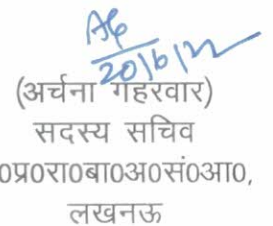 AG
20/6/22
(अर्चना गहरवार)
सदस्य सचिव
0प्र0रा0बा0अ0सं0आ0,
लखनऊ